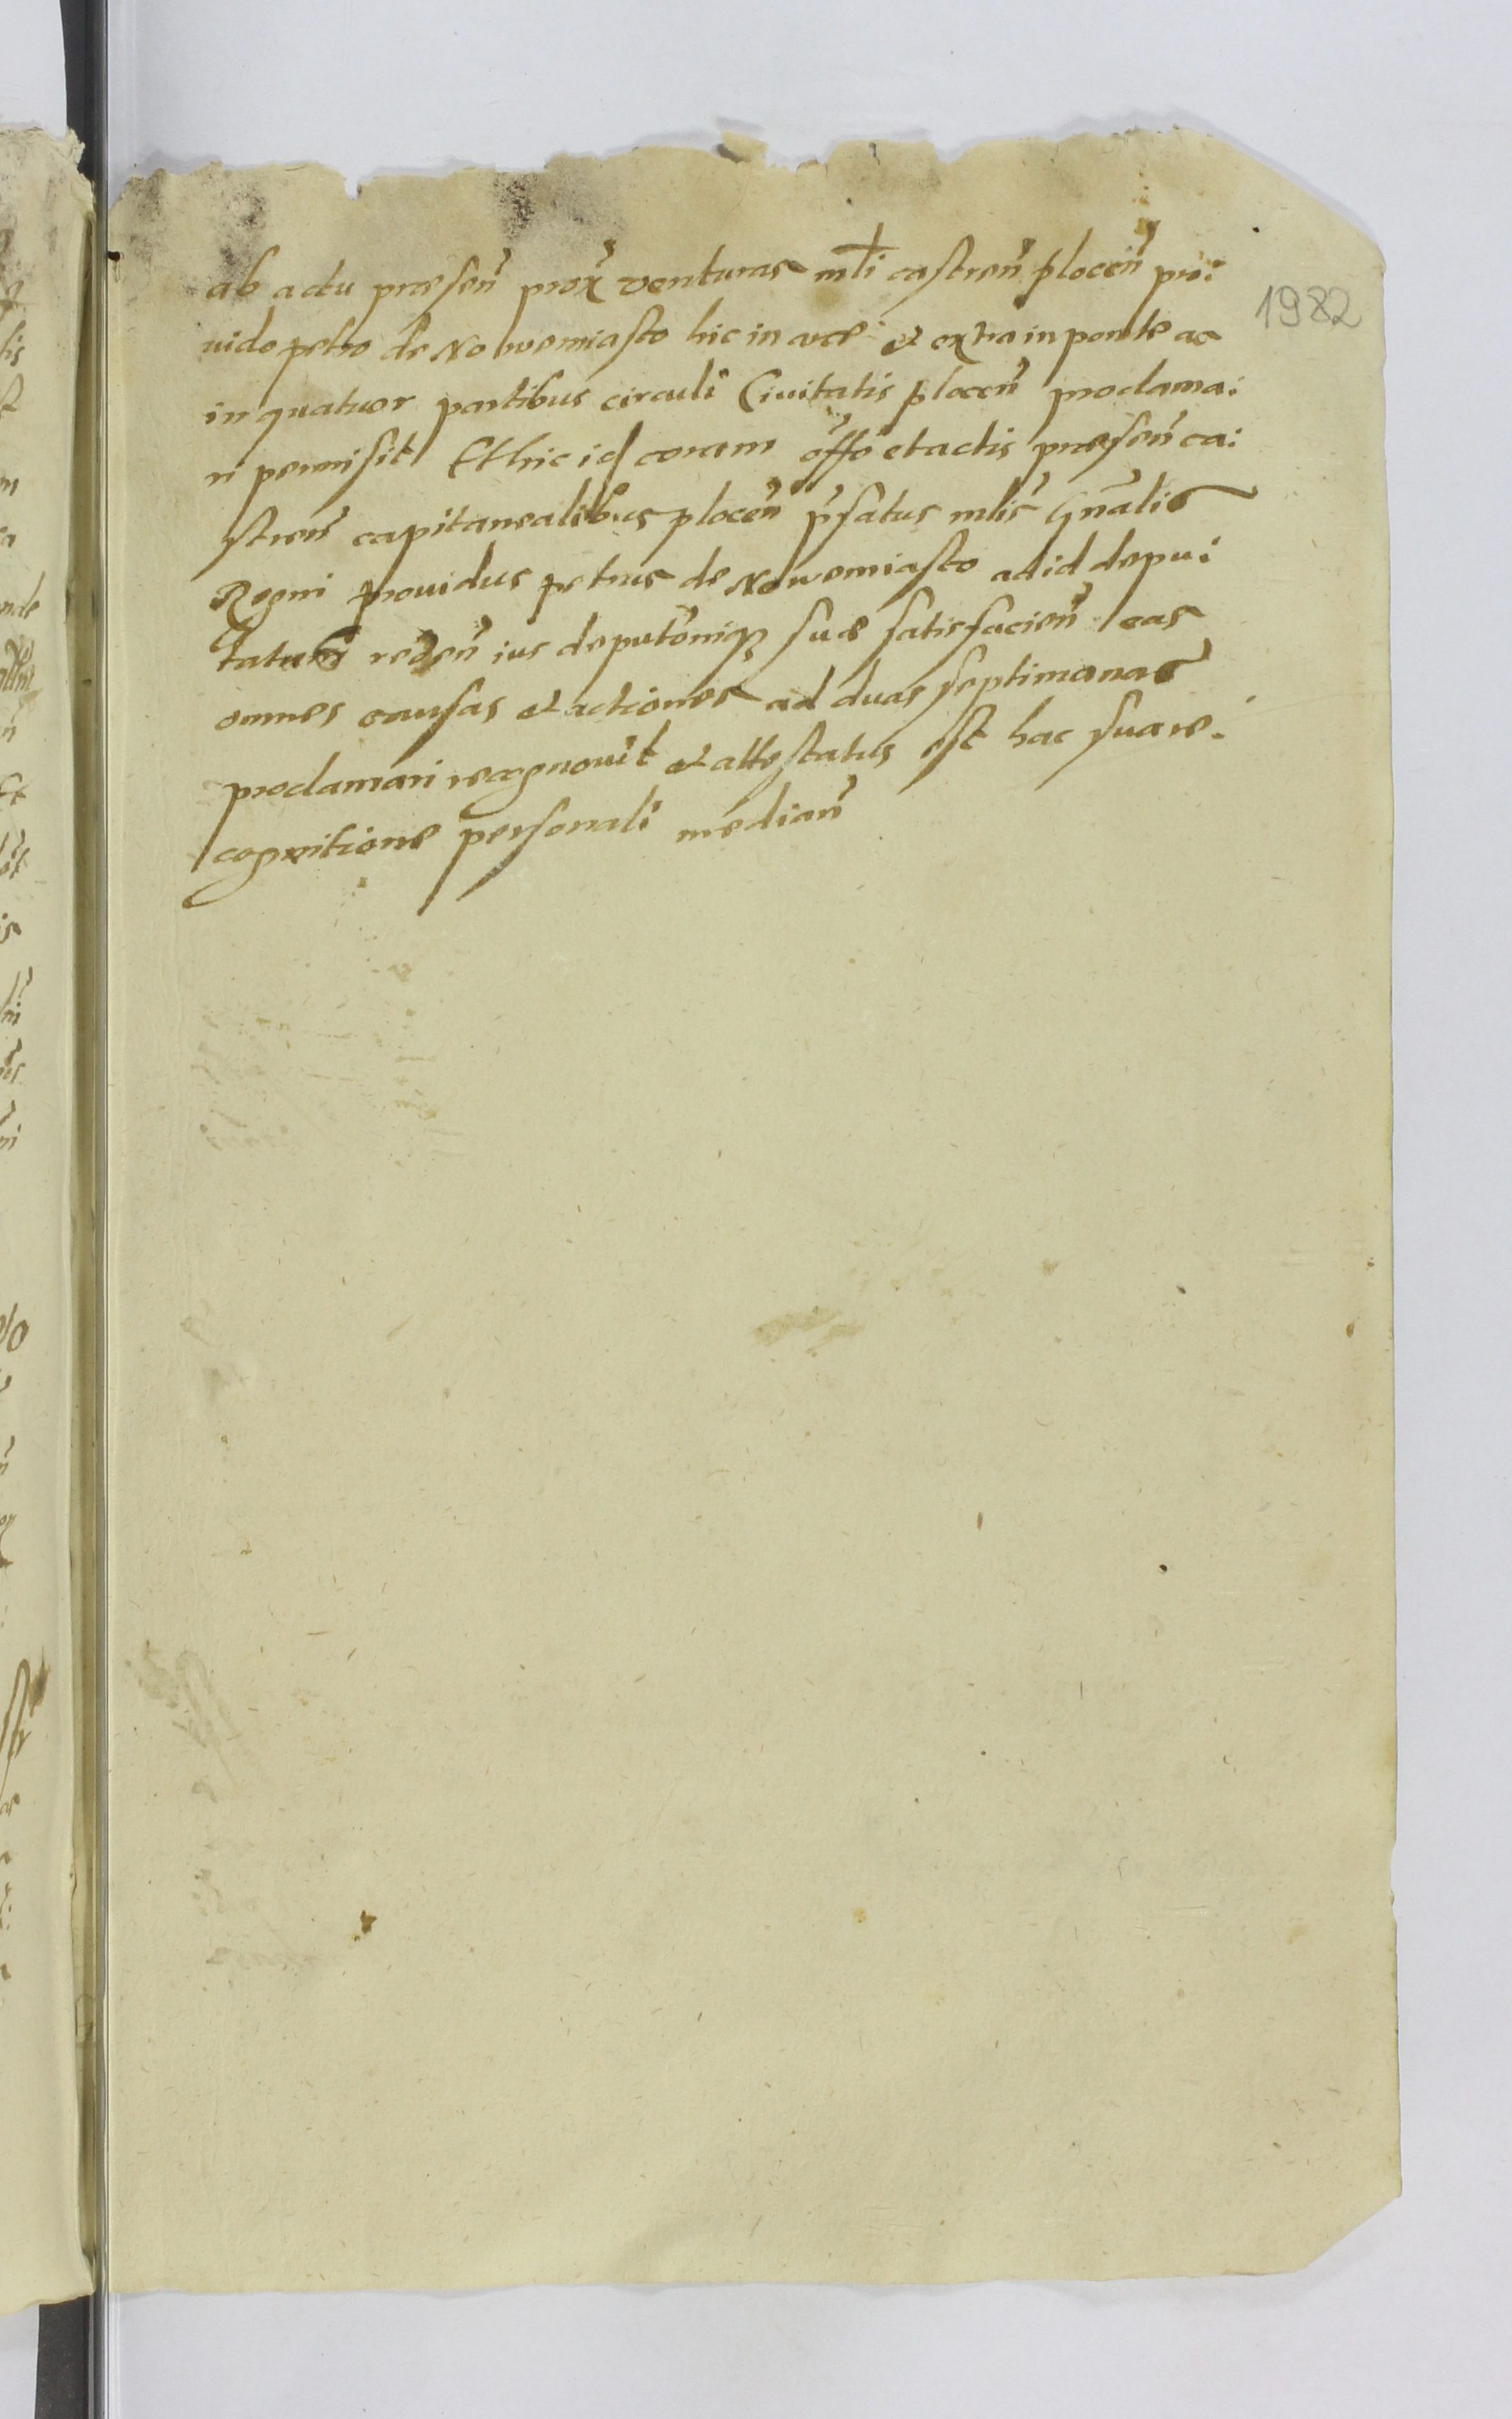 ab actu præsen̄ prox venturas mli castren̄ plocen̄ pro:
uido petro de Nowemiasto hic in arce et extra in ponte ac
in quatuor partibus circuli Ciuitatis plocen̄ proclama:
ri permisit Et hic id coram offo et actis præsen̄ ca:
stren̄ capitanealibus plocen̄ p̄fatus mlis Gn̄alis
Regni prouidus petrus de Nowemiasto ad id depu:
tatus redēn ius deputōniq suæ satisfacien̄ eas
omnes causas et actiones ad duas septimanas
proclamari recognouit et attestatus est hac sua re:
cognitione personali median̄
1982